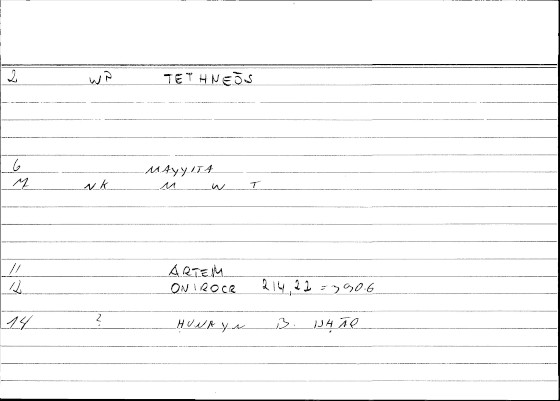 2 WP TETHNEŌS
6 MAYYITA
M NK M W T
11 ARTEM
12 ONIROCR 214,22 = 390.6
14 ? ḤUNAYN B. ISḤĀQ